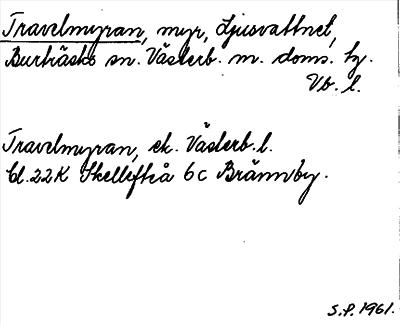 Travelmyran, myr, Ljusvattnet,
Burträsks sn. Västerb. m. doms. hj.
Vb. l.
Travelmyran, ek. Västerb. l.
bl. 22K Skellefteå 6c Brännby.
S.P. 1961.